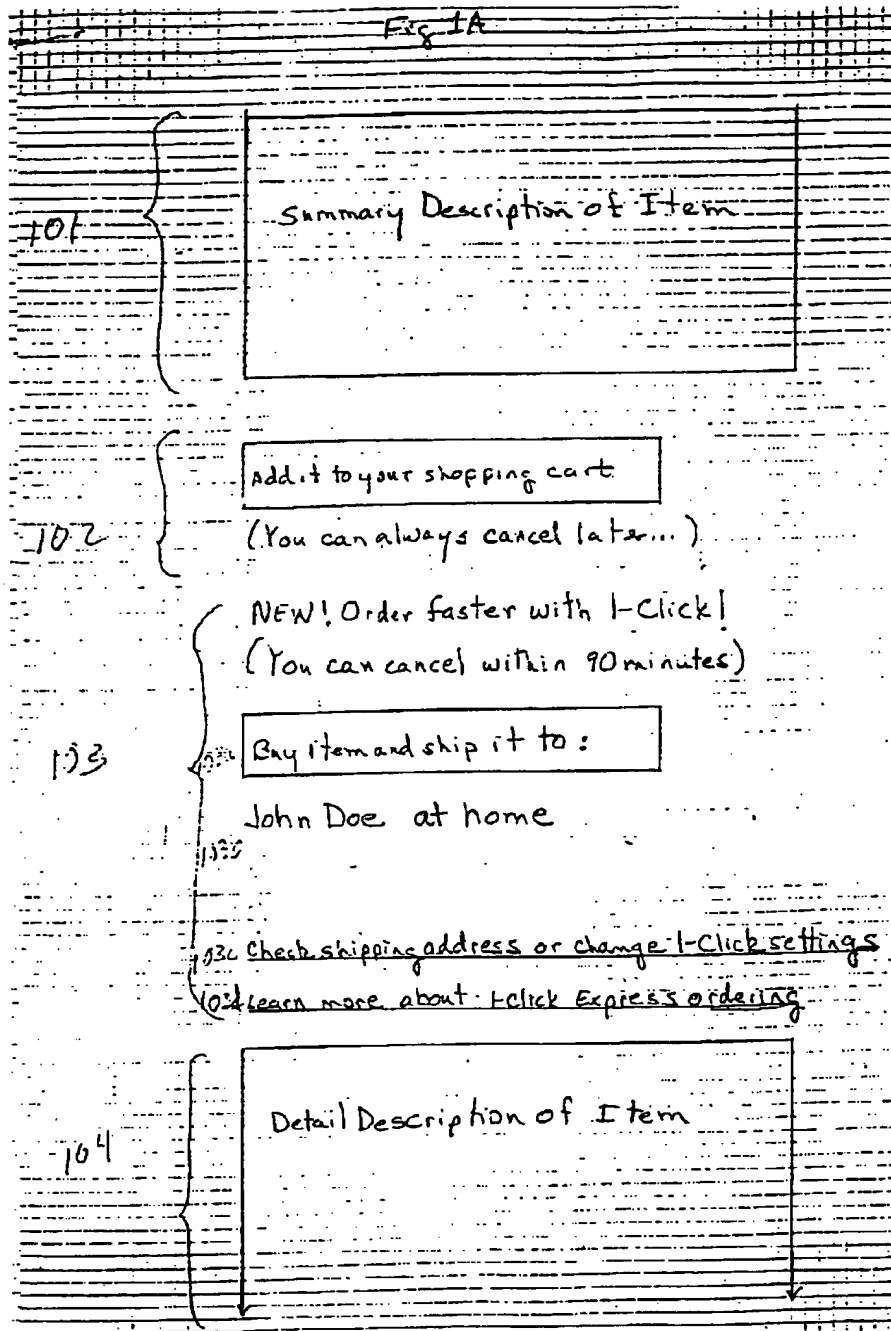 Fig 1A
101
Summary Description of Item
Add it to your shopping cart
102
(You can always cancel later...)
NEW! Order faster with 1-Click!
(You can cancel within 90 minutes)
103
Buy item and ship it to:
John Doe at home
103c Check shipping address or change 1-Click settings
103d Learn more about 1-Click Express ordering
104
Detail Description of Item